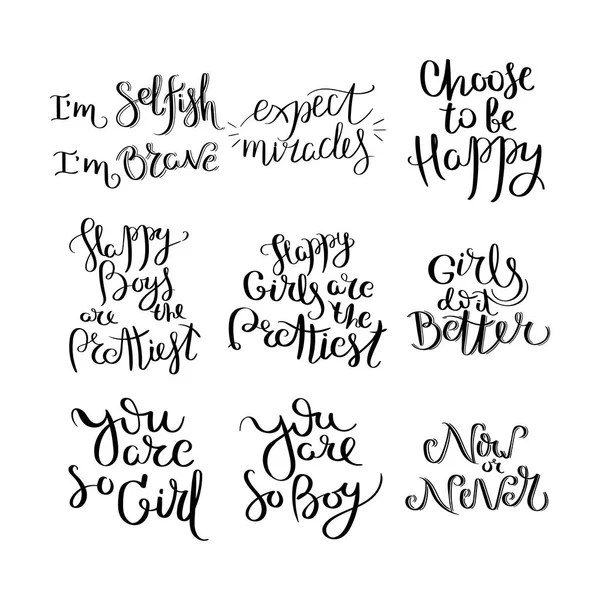 I'm Selfish
I'm Brave
expect
miracles
Choose
to be
Happy
Happy
Boys
are the
Prettiest
Happy
Girls are
the
Prettiest
Girls
do it
Better
You
are
so Girl
You
are
so Boy
Now
or
Never